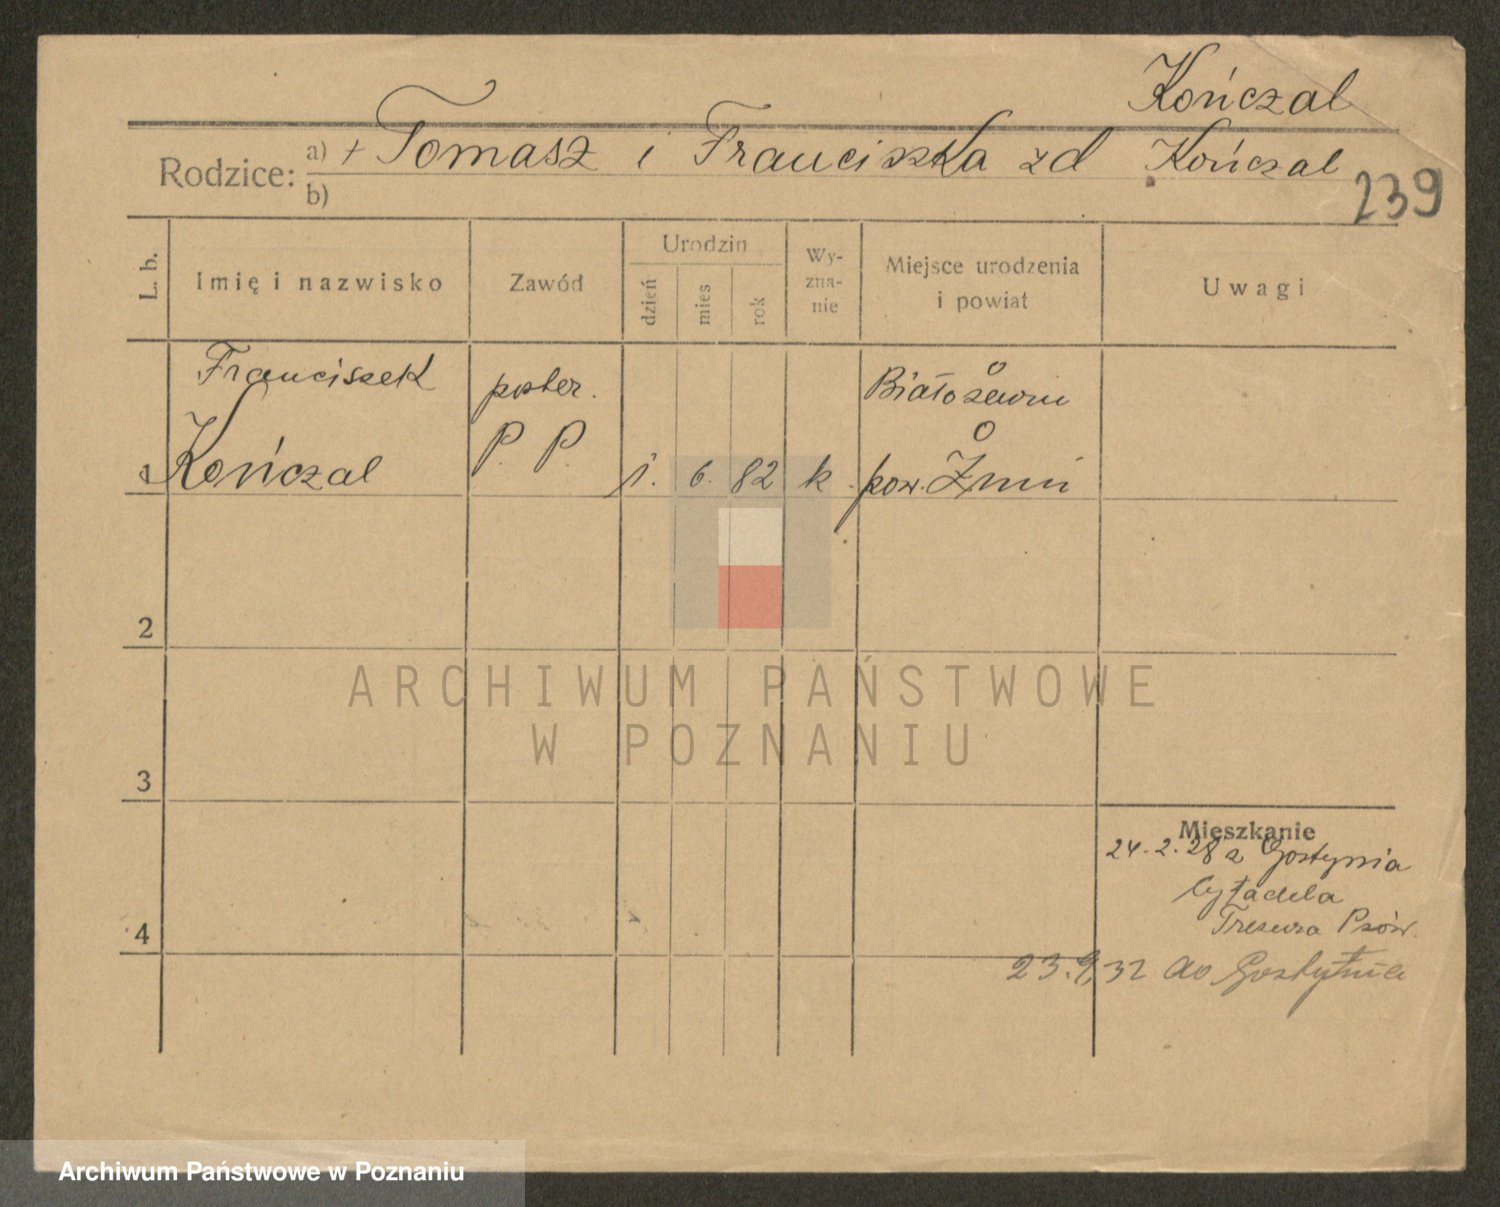 Kończal
Rodzice: a) + Tomasz i Franciszka zd Kończal
b)
239
L. b.
Imię i nazwisko
Zawód
Urodzin
dzień
mies
rok
Wy-
zna-
nie
Miejsce urodzenia
i powiat
Uwagi
Franciszek
Kończal
poster.
P. P.
1
1. 6. 82 k.
Białożewin
pow. Żnin
2
3
4
Mieszkanie
24.2.28 z Gostynia
Cytadela
Tresura Psów.
23.9.32 do
ARCHIWUM PAŃSTWOWE
W POZNANIU
Archiwum Państwowe w Poznaniu